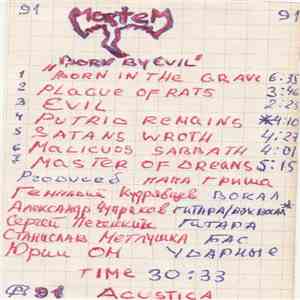 91 MORTEM 91
„BORN BY EVIL"
1 BORN IN THE GRAVE 6:35
2 PLAGUE OF RATS 3:46
3 EVIL 2:25
4 PUTRID REMAINS 4:10
5 SATANS WROTH 4:23
6 MALICUOS SABBATH 4:01
7 MASTER OF DREAMS 5:15
PRODUCED ПАПА ГРИША
Геннадий Кудрявцев ВОКАЛ
Александр ГИТАРА/
Сергей ГИТАРА
Станислав МЕТЛУШКА БАС
Юрий ОМ УДАРНЫЕ
TIME 30:33
91 ACUSTICA